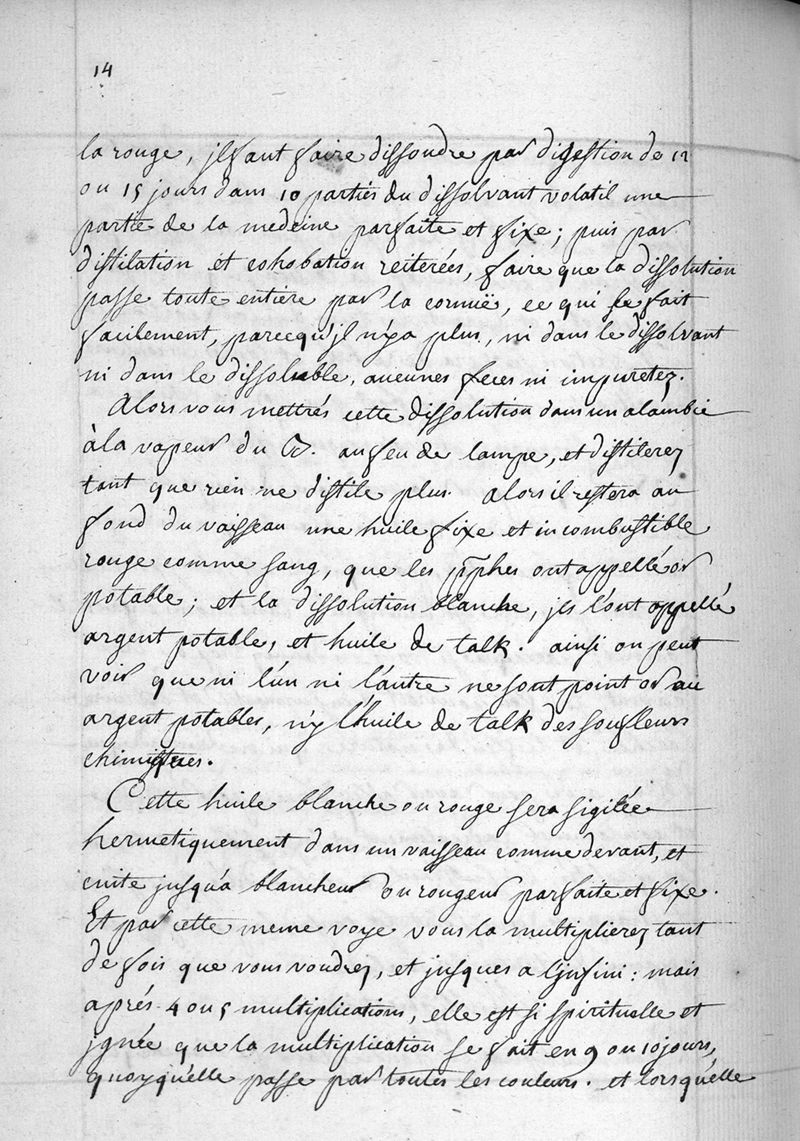 14
la rouge, jl faut faire dissoudre par digestion de 12
ou 15 jours dans 10 parties du dissolvant volatil une
partie de la medecine parfaite et fixe; puis par
distilation et cohobation reiterées, faire que la dissolution
passe toute entiere par la cornuë, ce qui se fait
facilement, parcequ'jl n'ya plus, ni dans le dissolvant
ni dans le dissoluble, aucunes feces ni impuretez.
Alors vous mettrés cette dissolution dans un alambic
à la vapeur du au feu de lampe, et distilerez
tant que rien ne distile plus. Alors il restera au
fond du vaisseau une huile fixe et incombustible
rouge comme sang, que les pphes ont appellé or
potable; et la dissolution blanche, jls l'ont appellé
argent potable, et huile de talk. ainsi on peut
voir que ni l'un ni l'autre ne sont point or au
argent potables, n'y l'huile de talk des soufleurs
chimiques.
Cette huile blanche ou rouge sera sigilée
hermetiquement dans un vaisseau comme devant, et
cuite jusqu'a blancheur ou rougeur parfaite et fixe.
Et par cette meme voye vous la multiplierez tant
de fois que vous voudrez, et jusques a l'jnfini: mais
aprés 4 ou 5 multiplications, elle est si spirituelle et
jgnée que la multiplication se fait en 9 ou 10 jours,
quoyqu'elle passe par toutes les couleurs. et lorsqu'elle